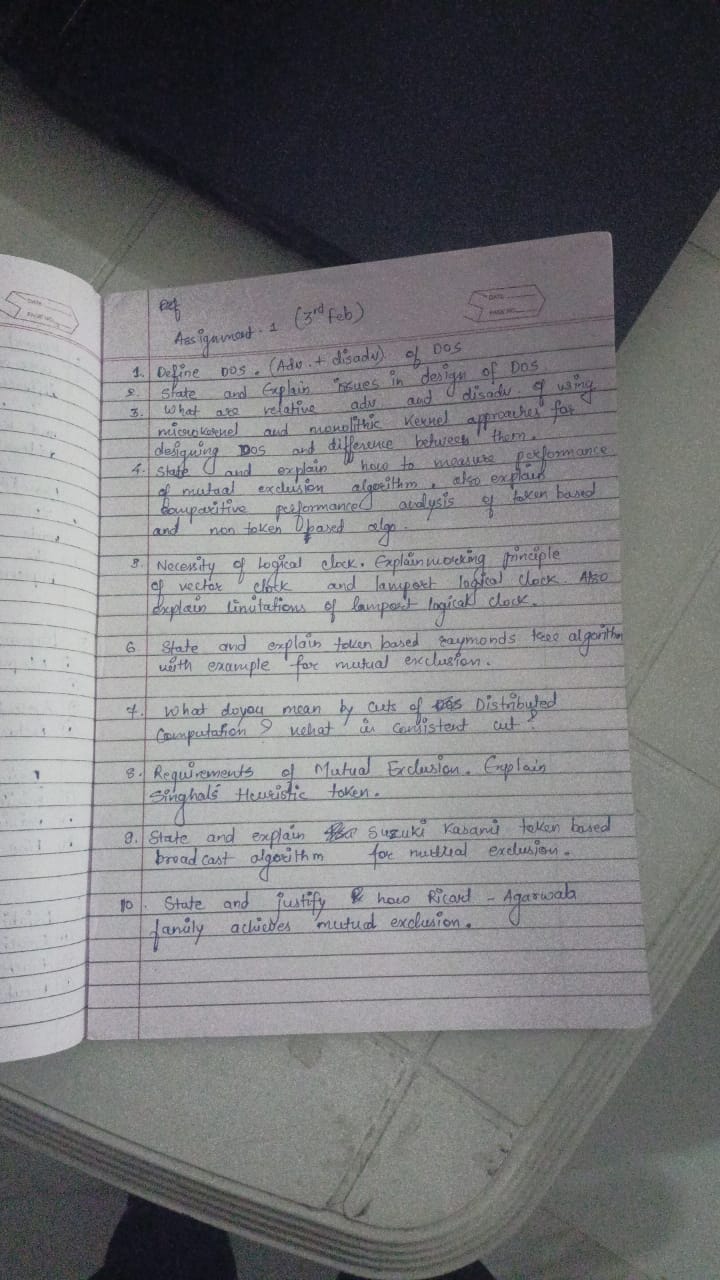 Assignment - 1 (3rd Feb)
1. Define DOS. (Adv. + disadv) of DOS
2. State and Explain issues in design of DOS
3. What are relative adv and disadv. of using
microkernel and monolithic Kernel approaches for
designing DOS and difference between them.
4. State and explain how to measure performance
of mutual exclusion algorithm, also explain
comparitive performance analysis of token based
and non token based algo.
5. Necessity of Logical clock. Explain working principle
of vector clock and lamport logical clock. Also
explain limitations of lamport logical clock.
6 State and explain token based raymonds tree algorithm
with example for mutual exclusion.
7. What do you mean by cuts of Distributed
Computation? What is consistent cut?
8. Requirements of Mutual Exclusion. Explain
Singhal's Heuristic token.
9. State and explain Suzuki Kasami token based
broadcast algorithm for mutual exclusion.
10. State and justify how Ricard - Agarwab
family achieves mutual exclusion.